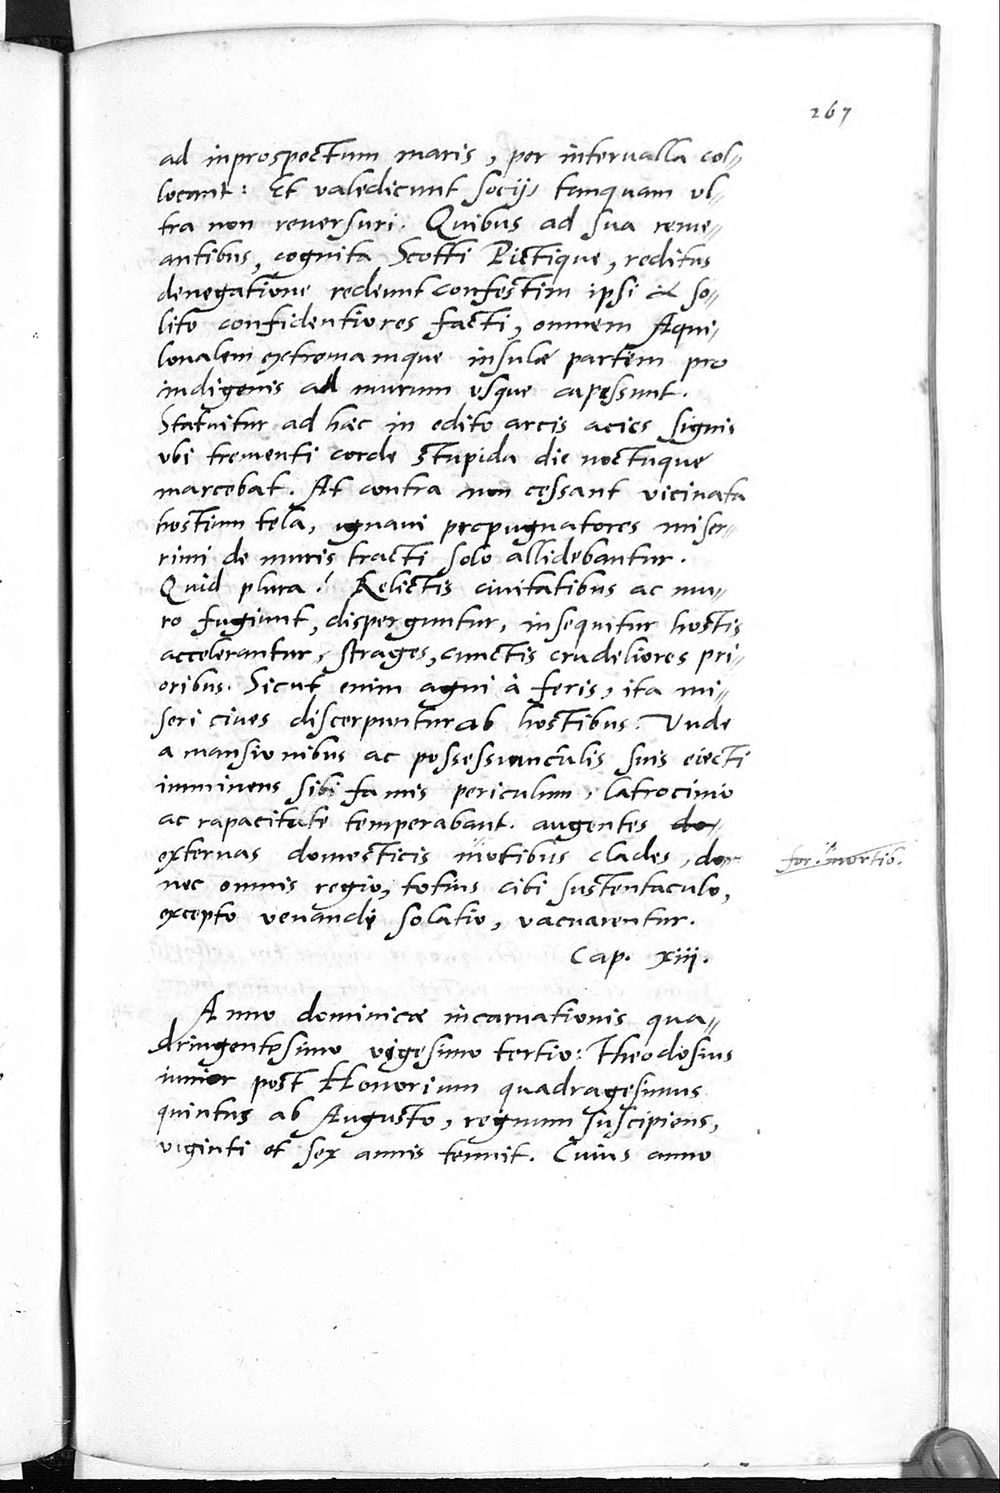 267
ad inprospectum maris, per interualla col„
locant: Et valedicunt socijs tanquam vl„
tra non reuersuri. Quibus ad sua reme„
antibus, cognita Scotti Pictique, reditus
denegatione redeunt confestim ipsi & so„
lito confidentiores facti, omnem Aqui„
lonalem extremamque insulæ partem pro
indigenis ad murum vsque capessunt.
Statuitur ad hæc in edito arcis acies signis
vbi trementi corde stupida die noctuque
marcebat. At contra non cessant vicinata
hostium tela, ignaui propugnatores miser„
rimi de muris tracti solo allidebantur.
Quid plura? Relictis ciuitatibus ac mu„
ro fugiunt, disperguntur, insequitur hostis
accelerantur, strages, cunctis crudeliores pri„
oribus. Sicut enim agni à feris, ita mi„
seri ciues discerpuntur ab hostibus. Vnde
a mansionibus ac possessiunculis suis eiecti
imminens sibi famis periculum, latrocinio
ac rapacitate temperabant. augentes do„
externas domesticis motibus clades, do„
nec omnis regio, totius cibi sustentaculo,
excepto venandi solatio, vacuarentur.
for. mortib.
Cap. xiij.
Anno dominicæ incarnationis qua„
dringentesimo vigesimo tertio: Theodosius
iunior post Honorium quadragesimus
quintus ab Augusto, regnum suscipiens,
viginti et sex annis tenuit. Cuius anno